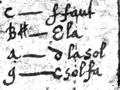 c — ffaut
B# — Ela
a — dlasol
g — csolfa